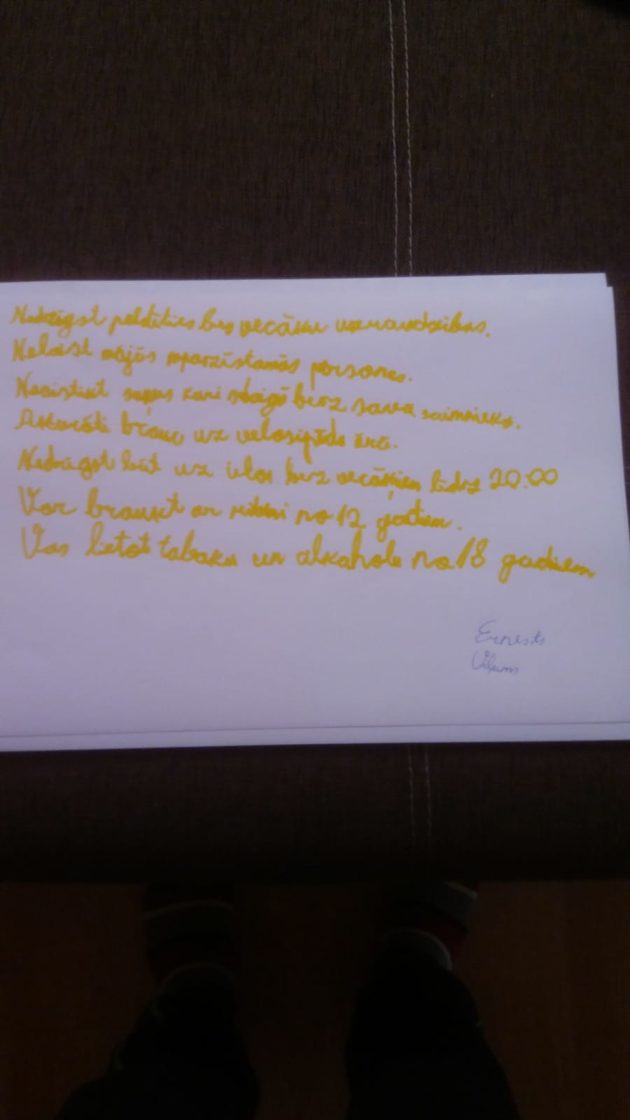 Nedrīgst peldēties bez vecāku uzraudzības.
Nelaist mājās nepazīstamās personas.
Neaistikt suņus kuri staigā bez sava saimnieka.
braukt uz velosipēda
Nedrīgst būt uz ielas bez vecākiem līdz 20:00
Var braukt ar riteni no 12 gadiem.
Var lietot tabaku un alkahole no 18 gadiem
Ernests